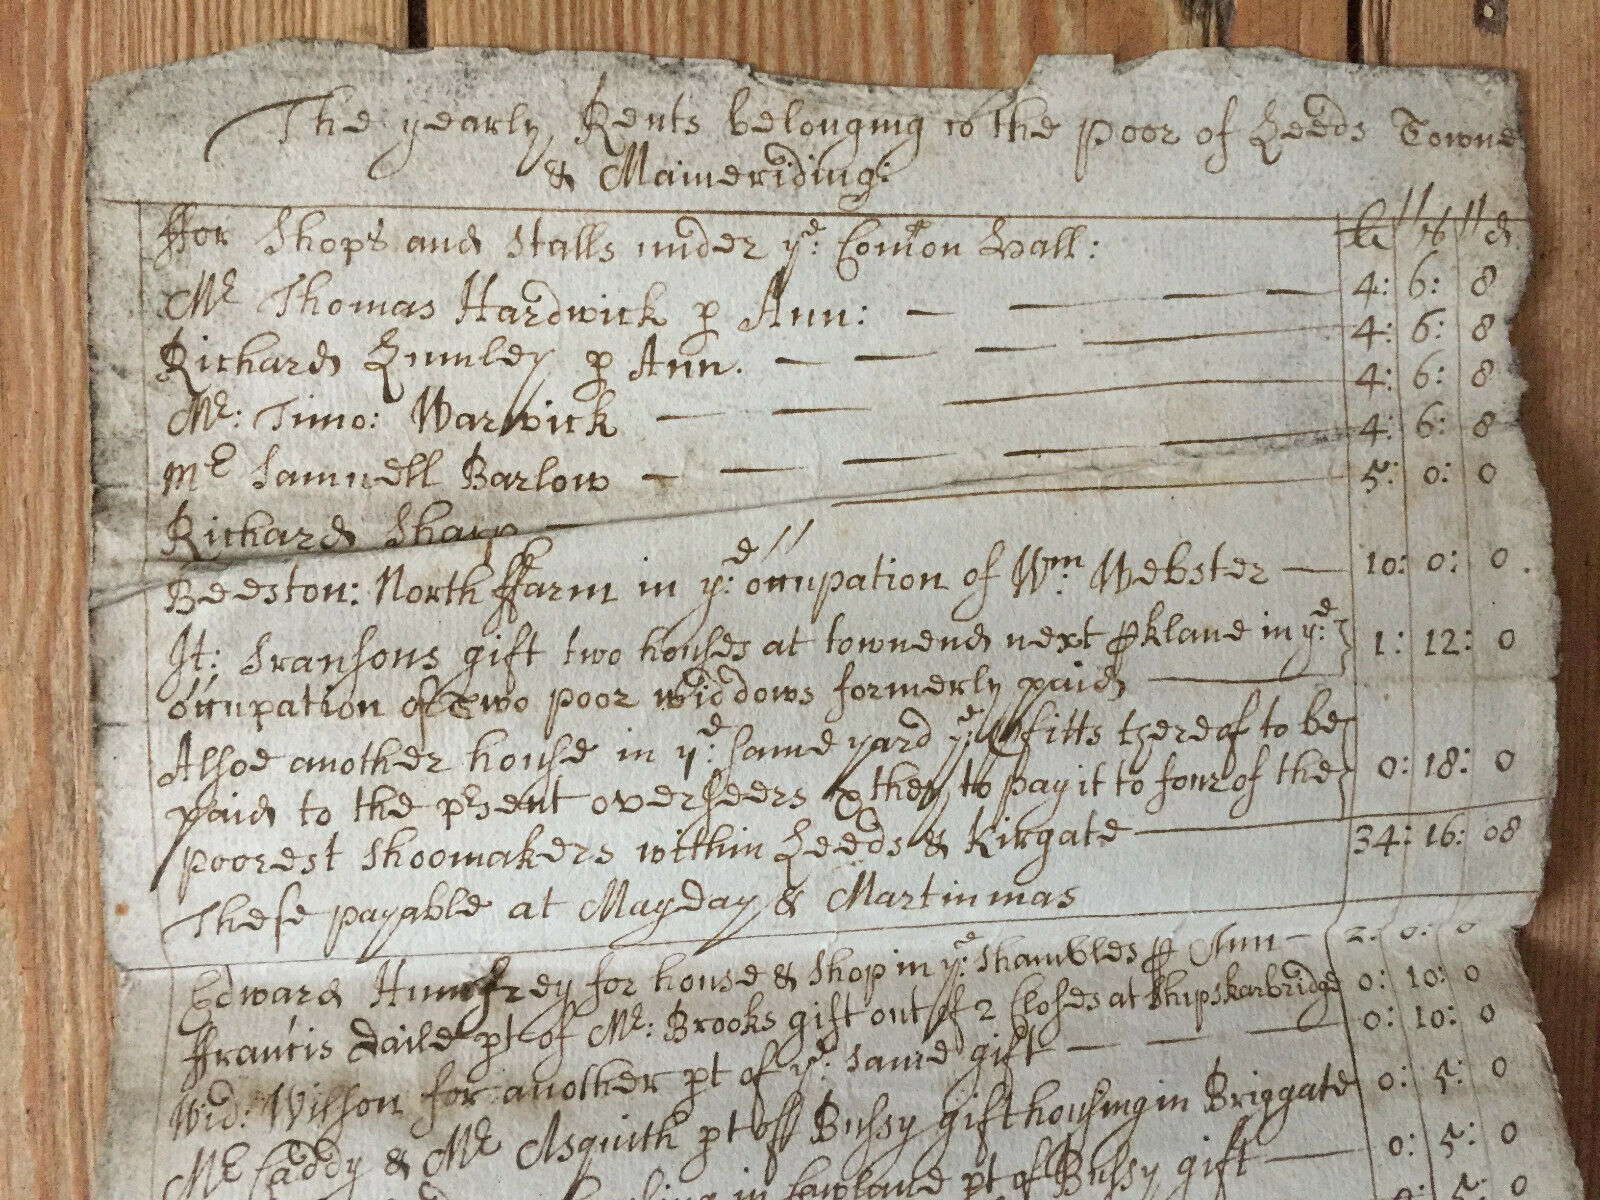 The yearly Rents belonging to the poor of Leeds Towne
& Maineriding:
ffor Shops and Stalls under yᵉ: Com̄on Hall: li // s // d
Mʳ Thomas Hardwick p Ann: — — — — 4: 6: 8
Richard Lumley p Ann. — — — — 4: 6: 8
Mʳ: Timo: Warwick — — — 4: 6: 8
Mʳ Samuell Barlow — — — — — 4: 6: 8
Richard Sharp — — 5: 0: 0
Beeston: North ffarm in yᵉ: occupation of Wᵐ Webster — 10: 0: 0.
It: Sransons gift two houses at townend next pkland in yᵉ: 1: 12: 0
occupation of Two poor widdows formerly paid —
Alsoe another house in yᵉ: same yard yᵉ: pfitts thereof to be
paid to the pʳsent overseers & they to pay it to four of the 0: 18: 0
poorest Shoomakers within Leeds & Kirgate — 34: 16: 08
These payable at Mayday & Martinmas
Edward Humfrey for house & Shop in yᵉ: Shambles p Ann — 2: 0: 0
ffrancis Daile pt of Mʳ: Brooks gift out of 2 Closes at Shipskarbridge 0: 10: 0
Wid: Wilson for another pt of yᵉ: same gift — — — 0: 10: 0
Mʳ Caddy & Mʳ Asquith pt off Bussy gift housing in Briggate 0: 5: 0
in pt of Bussy gift — 0: 5: 0